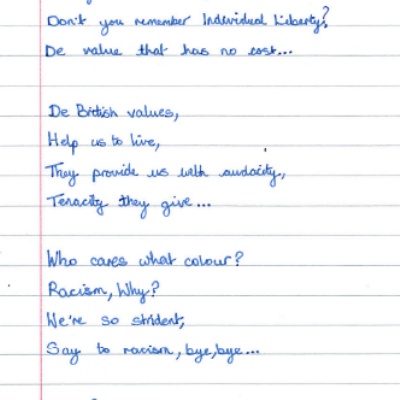 Don't you remember Individual Liberty?
De value that has no cost...
De British values,
Help us to live,
They provide us with audacity,
Tenacity they give...
Who cares what colour?
Racism, Why?
We're so strident,
Say to racism, bye, bye...